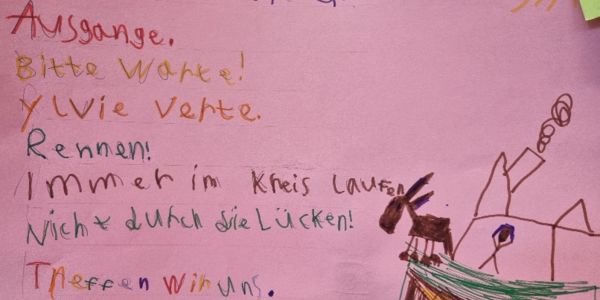 Ausgänge.
Bitte Warte!
Ylvie Verte.
Rennen!
Immer im Kreis Laufen
Nicht durch die Lücken!
Treffen Wir uns.